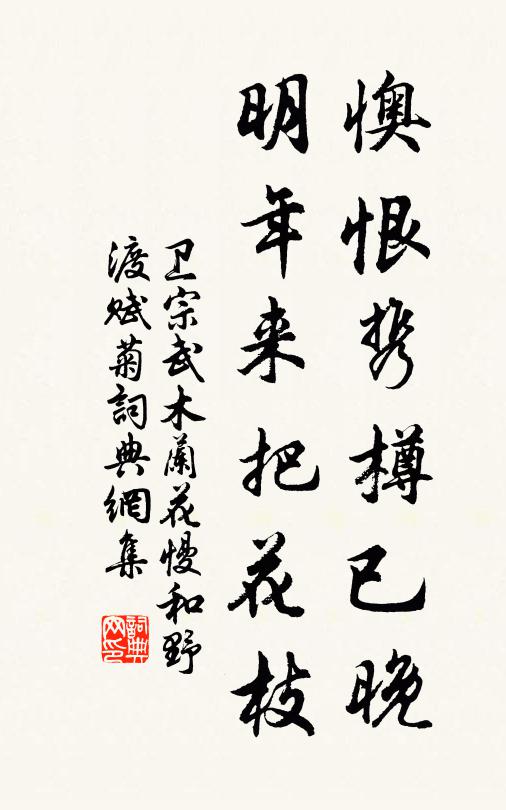 懊恨携樽已晚
明年来把花枝
卫宗武木蘭花慢和野
渡赋菊詞典網集
詞典网印